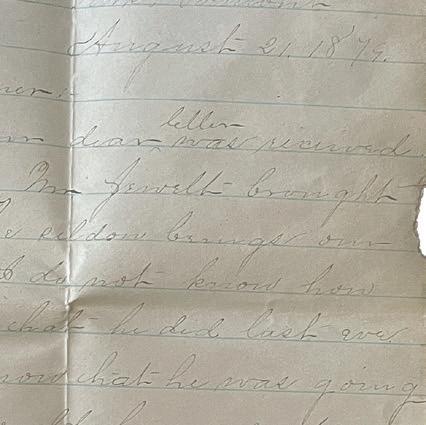 Vermont
August 21. 1879.
dear letter was received.
Mr Jewett brought
seldom brings our
do not know how
that he did last eve
that he was going